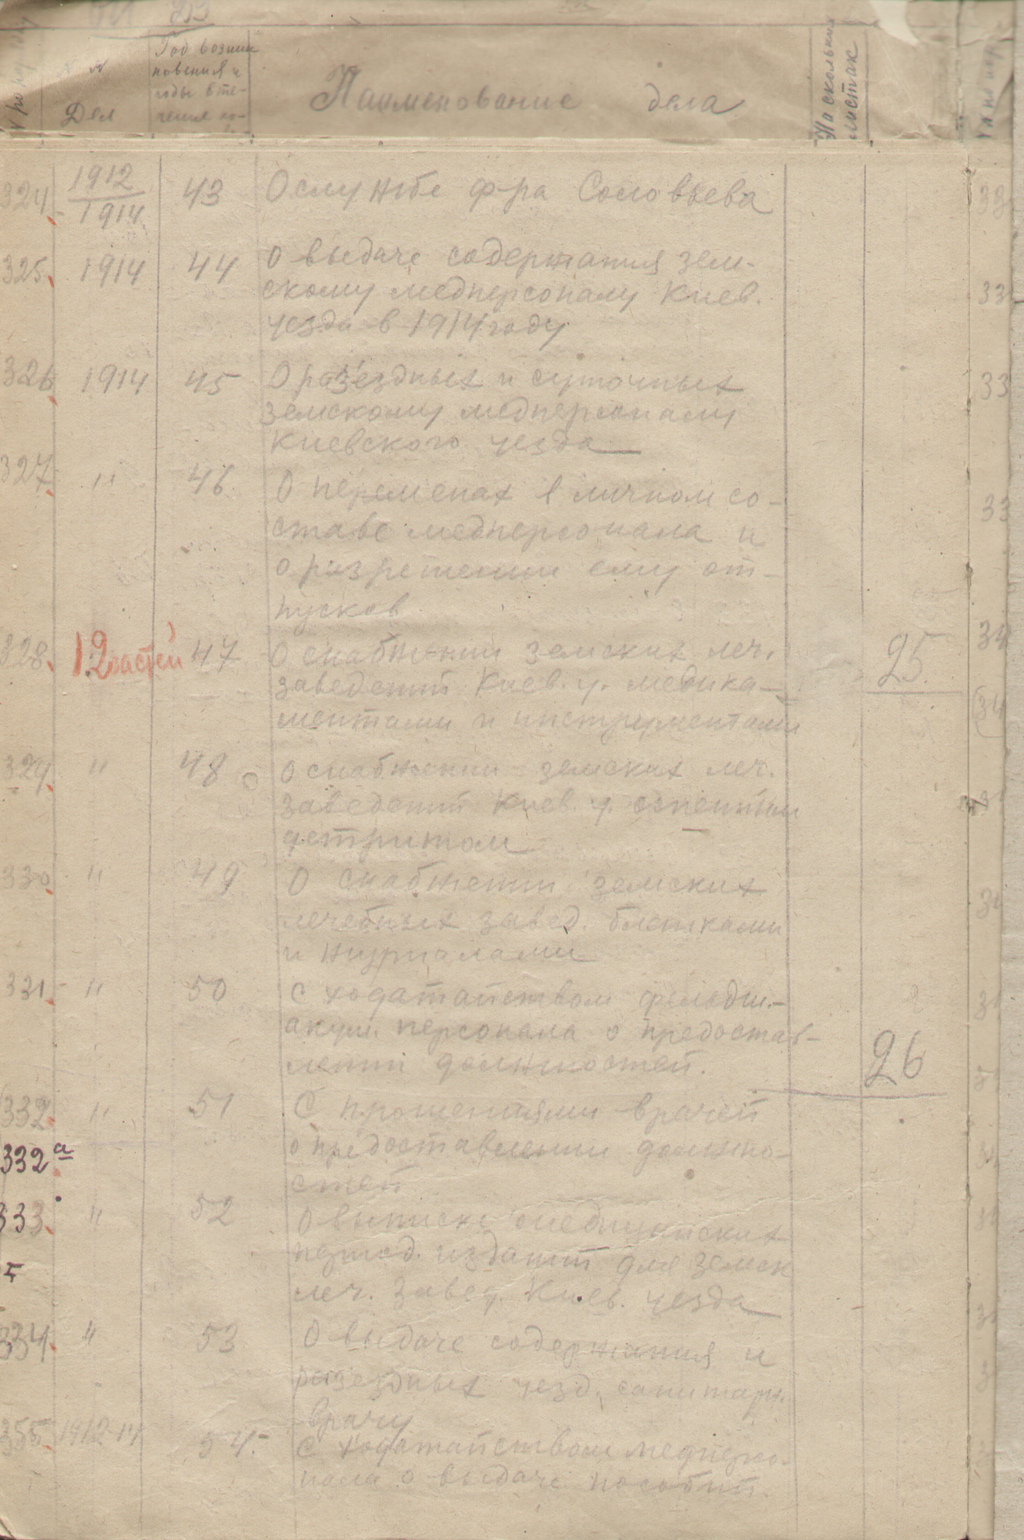 № Дел
Год возник
новения и
годы в те-
чения ко-
Наименование дела
На скольких
листах
324 1912/1914 43 О службе ф-ра Соловьева
325 1914 44 О выдаче содержания зем-
скому медперсоналу Киев.
уезда в 1914 году
326 1914 45 О раз'ездных и суточных
земскому медперсоналу
Киевского уезда
327 " 46 О переменах в личном со-
ставе медперсонала и
о разрешении ему от-
пусков
328 12 частей 47 О снабжении земских леч. 25
заведений Киев. у. медика-
ментами и инструментами
329 " 48 О снабжении земских леч.
заведений Киев. у. оспенным
детритом
330 " 49 О снабжении земских
лечебных завед. бланками
и журналами
331 " 50 С ходатайством фельдш.-
акуш. персонала о предостав-
лении должностей. 26
332 " 51 С прошениями врачей
332а о предоставлении должно-
стей
333 " 52 О выписке медицинских
период. изданий для земск
леч. завед. Киев. уезда
334 " 53 О выдаче содержания и
раз'ездных уезд. санитарн.
врачу
335 1912-14 54 С ходатайством медперсо-
нала о выдаче пособий.